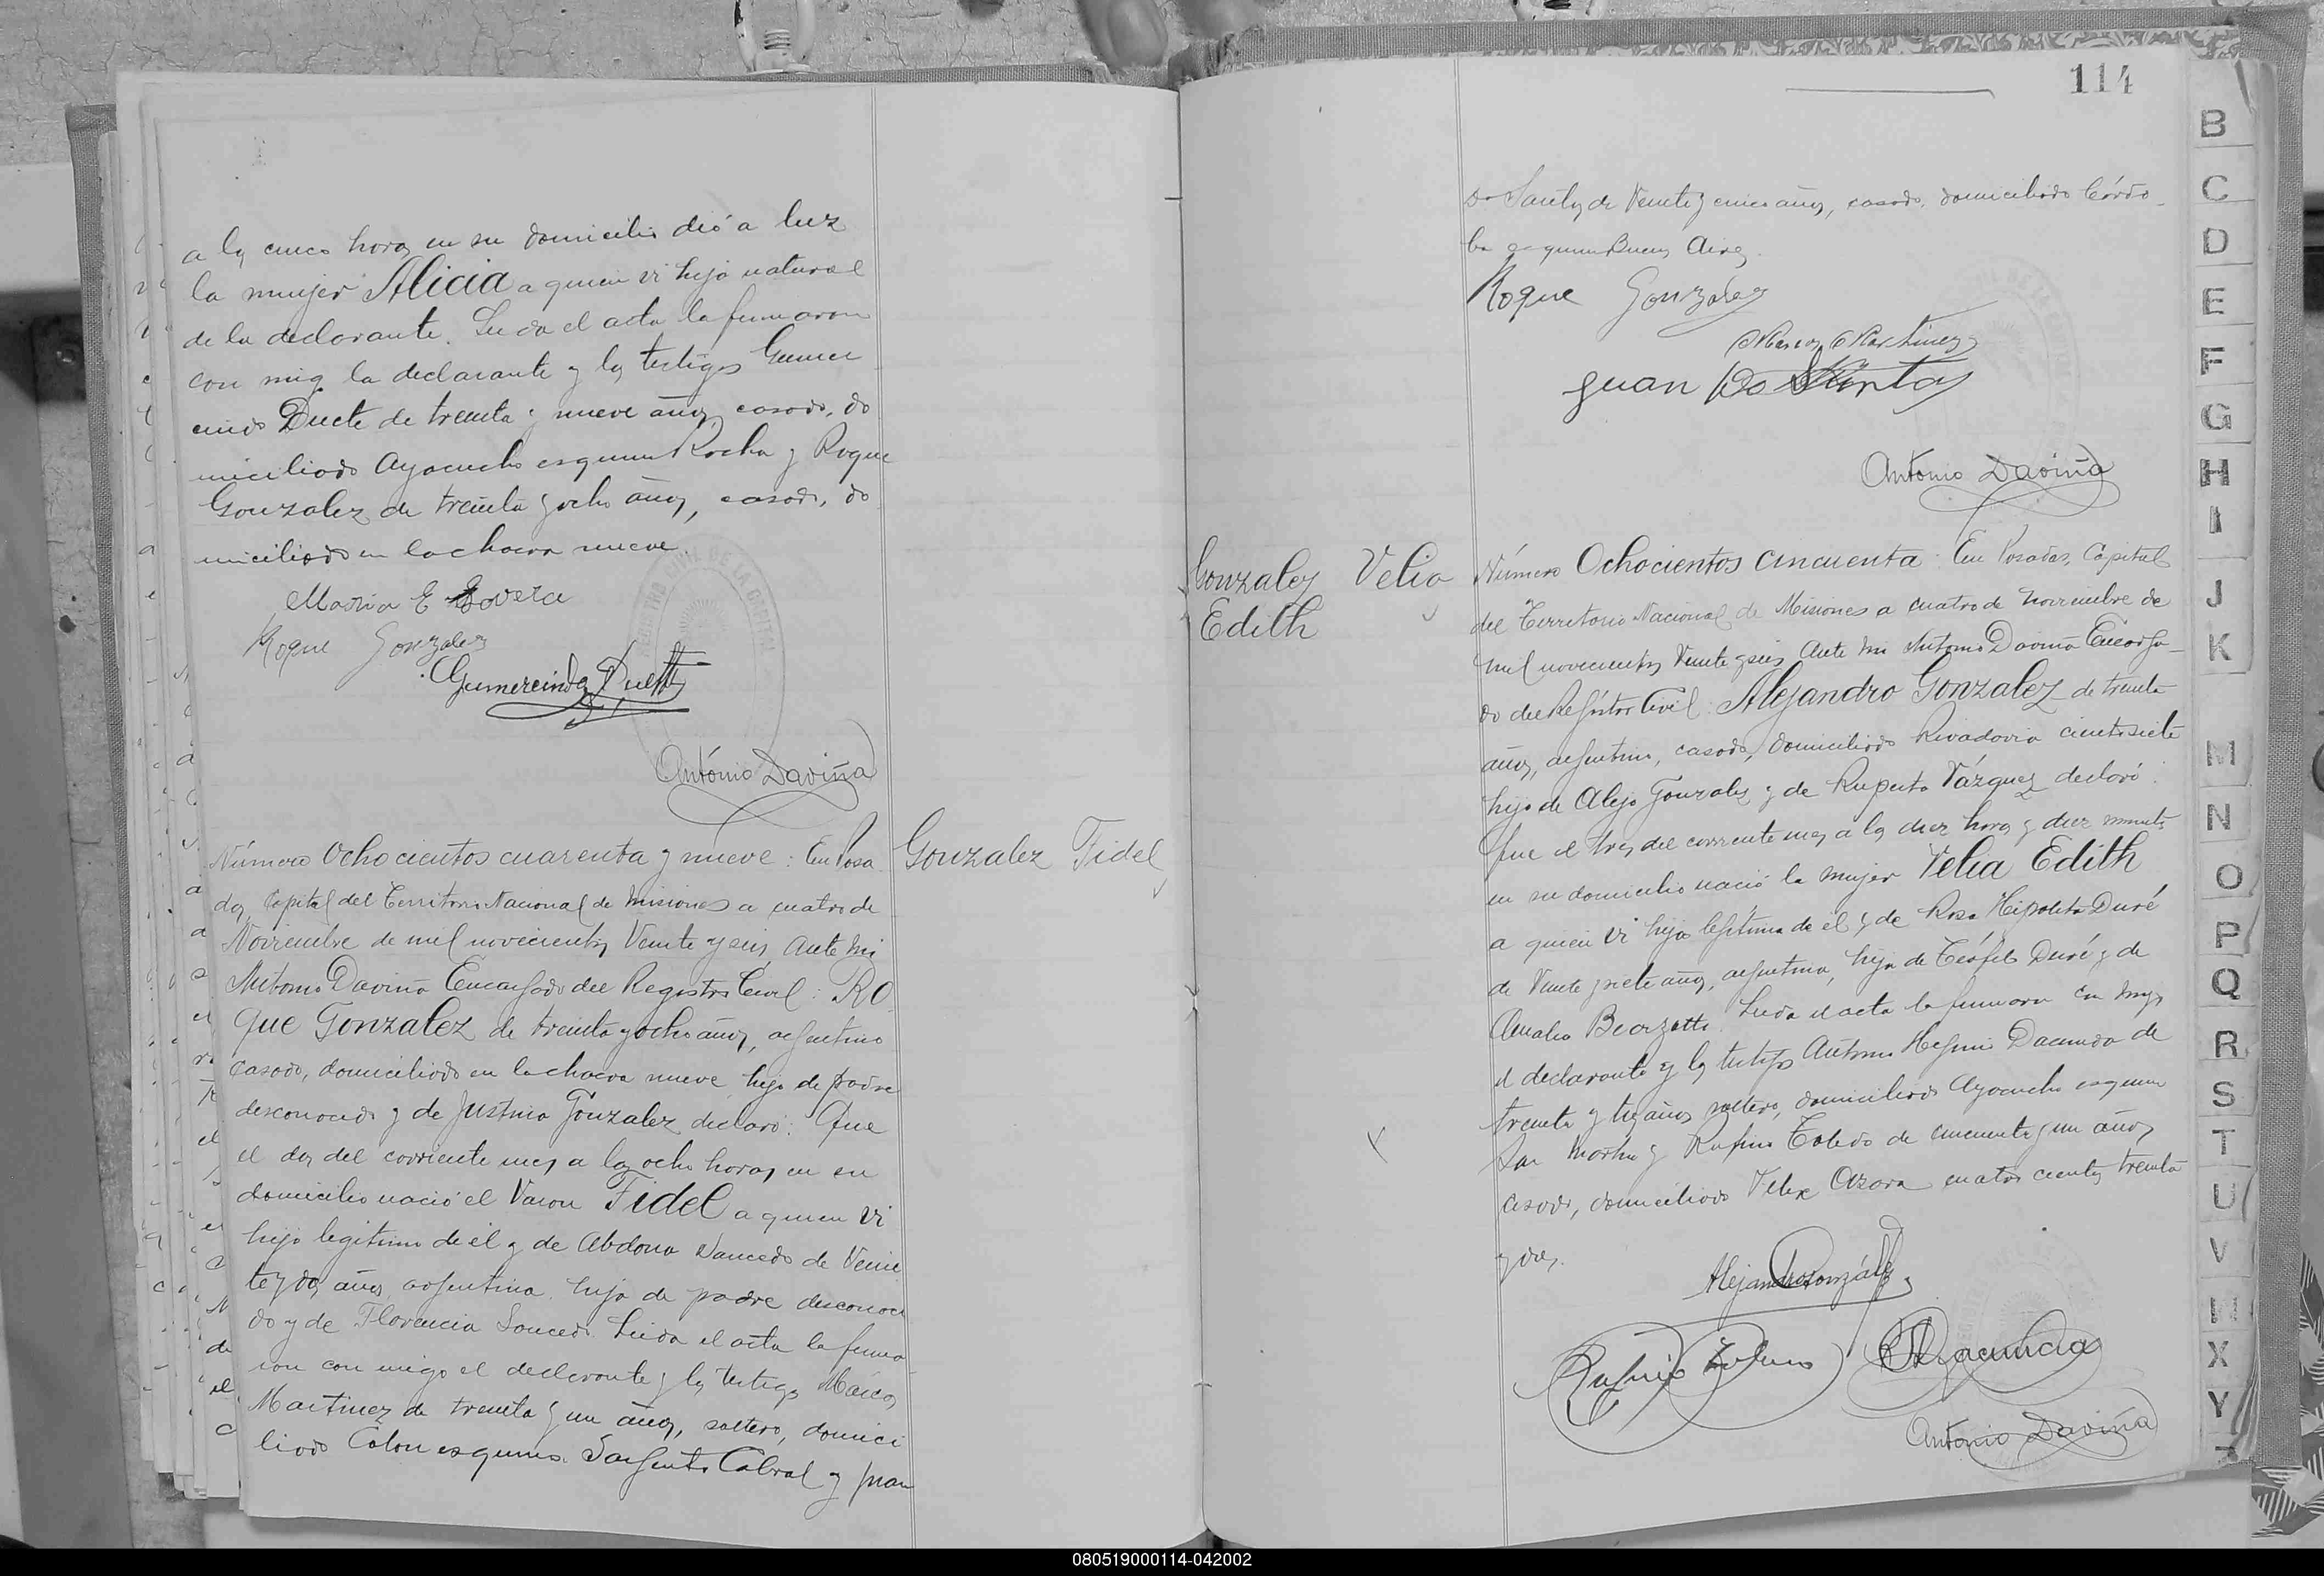 a las cinco horas en su domicilio dió a luz
la mujer Alicia a quien vi hija natural
de la declarante. Leida el acta la firmaron
con migo la declarante y los testigos Gumer
cindo Duete de treinta y nueve años, casado, do
miciliado Ayacucho esquina Rocha y Roque
Gonzalez de treinta y ocho años, casado, do
miciliado en la chacra nueve.
Maria E
Roque Gonzalez
Gumercindo Duett
Antonio Daviña
Número Ochocientos cuarenta y nueve: En Posa
das, Capital del Territorio Nacional de Misiones a cuatro de
Noviembre de mil novecientos Veinte y seis, Ante mi
Antonio Daviña Encargado del Registro Civil: Ro
que Gonzalez de treinta y ocho años, argentino
casado, domiciliado en la chacra nueve, hijo de padre
desconocido y de Justina Gonzalez declaró: Que
el dos del corriente mes a las ocho horas en su
domicilio nació el Varon Fidel a quien vi
hijo legitimo de él y de Abdona Saucedo de Vein
te y dos años, argentina, hija de padre desconoci
do y de Florencia Saucedo. Leida el acta la firma
ron con migo el declarante y los testigos Marcos
Martinez de treinta y un años, soltero, domici
liado Colon esquina Sargento Cabral y Juan
Gonzalez Fidel
114
Do Santos de Veinte y cinco años, casado, domiciliado Córdo
ba esquina Buenos Aires.
Roque Gonzalez
Marcos Martinez
Juan Do Santos
Antonio Daviña
Gonzalez Velia
Edith
Número Ochocientos cincuenta: En Posadas, Capital
del Territorio Nacional de Misiones a cuatro de Noviembre de
mil novecientos Veinte y seis, Ante mi Antonio Daviña Encarga
do del Registro Civil: Alejandro Gonzalez de treinta
años, argentino, casado, domiciliado Rivadavia ciento siete
hijo de Alejo Gonzalez y de Ruperta Vázquez declaró:
Que el tres del corriente mes a las diez horas y diez minutos
en su domicilio nació la mujer Velia Edith
a quien vi hija legitima de él y de Rosa Hipolita Duré
de Veinte y siete años, argentina, hija de Teófilo Duré y de
Amalia Bearzotti. Leida el acta la firmaron con migo
el declarante y los testigos Antonio Higinio Dacunda de
treinta y tres años, soltero, domiciliado Ayacucho esquina
San Martin y Rufino Toledo de cincuenta y un años,
casado, domiciliado Felix Azara cuatro cientos treinta
y dos.
Alejandro González
Rufino Toledo
Antonio Daviña
B
C
D
E
F
G
H
I
J
K
M
N
O
P
Q
R
S
T
U
V
X
Y
Z
080519000114-042002